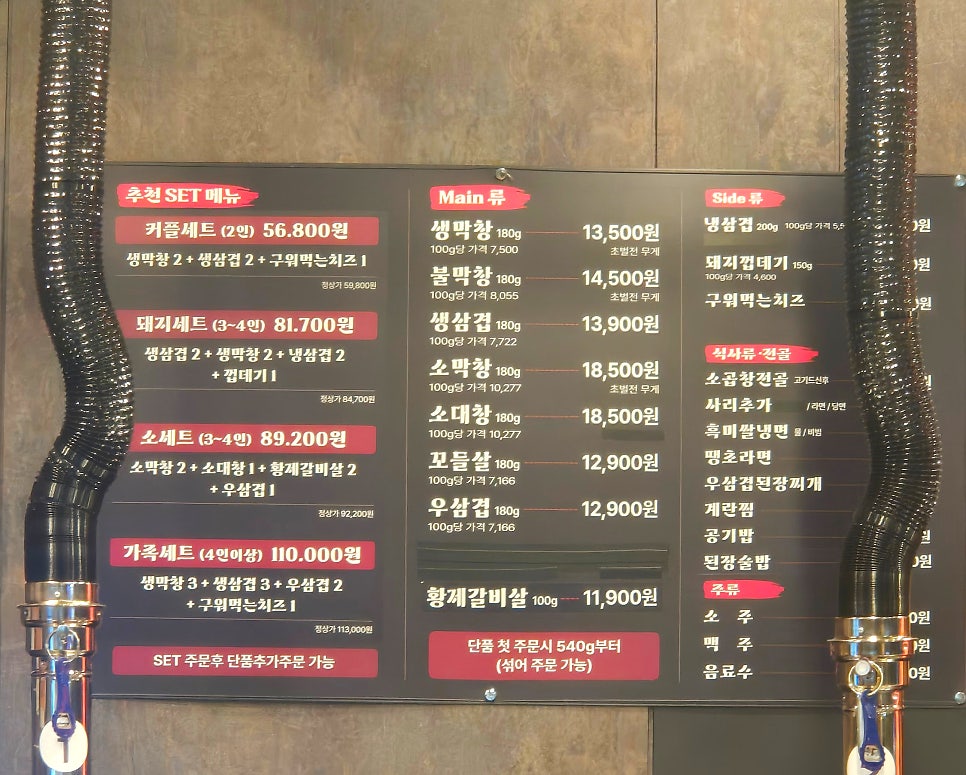 추천 SET 메뉴
커플세트 (2인) 56.800원
생막창 2 + 생삼겹 2 + 구워먹는치즈 1
정상가 59,800원
돼지세트 (3~4인) 81.700원
생삼겹 2 + 생막창 2 + 냉삼겹 2
+ 껍데기 1
정상가 84,700원
소세트 (3~4인) 89.200원
소막창 2 + 소대창 1 + 황제갈비살 2
+ 우삼겹 1
정상가 92,200원
가족세트 (4인이상) 110.000원
생막창 3 + 생삼겹 3 + 우삼겹 2
+ 구워먹는치즈 1
정상가 113,000원
SET 주문후 단품추가주문 가능
Main 류
생막창 180g 13,500원
100g당 가격 7,500 초벌전 무게
불막창 180g 14,500원
100g당 가격 8,055 초벌전 무게
생삼겹 180g 13,900원
100g당 가격 7,722
소막창 180g 18,500원
100g당 가격 10,277 초벌전 무게
소대창 180g 18,500원
100g당 가격 10,277
꼬들살 180g 12,900원
100g당 가격 7,166
우삼겹 180g 12,900원
100g당 가격 7,166
황제갈비살 100g 11,900원
단품 첫 주문시 540g부터
(섞어 주문 가능)
Side 류
냉삼겹 200g 100g당 가격
돼지껍데기 150g
100g당 가격 4,600
구워먹는치즈
식사류·전골
소곱창전골 고기드신후
사리추가 / 라면 / 당면
흑미쌀냉면 물 / 비빔
땡초라면
우삼겹된장찌개
계란찜
공기밥
된장술밥
주류
소 주
맥 주
음료수